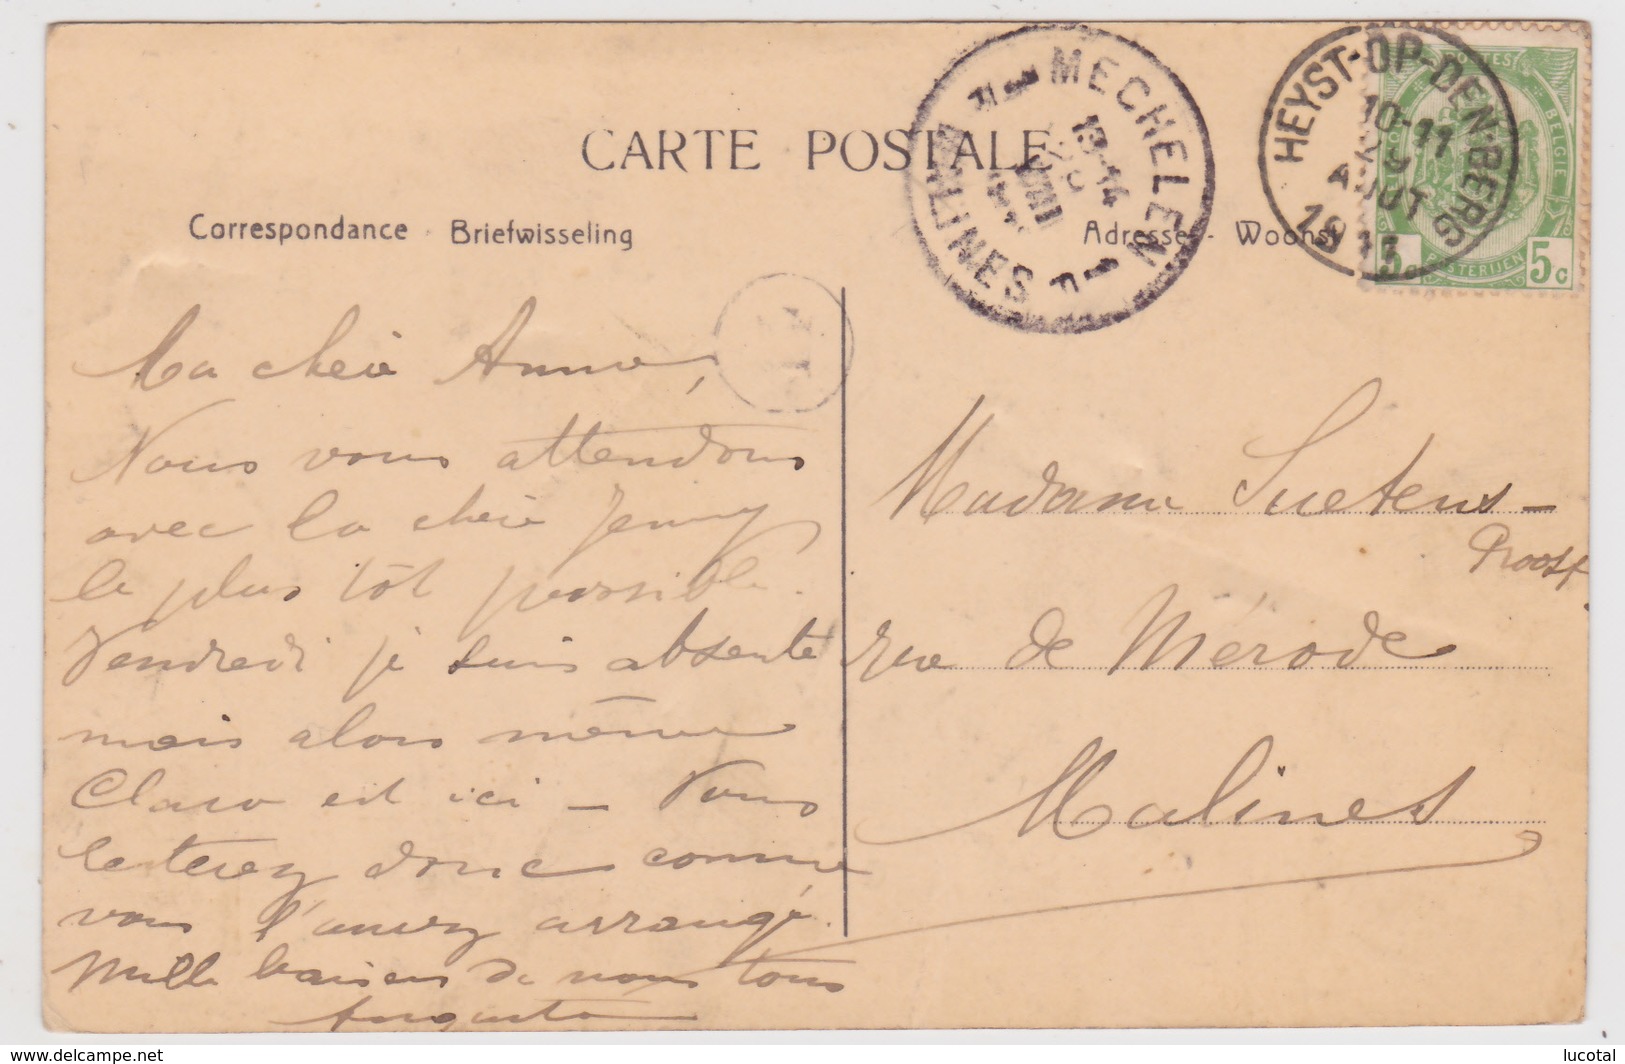 CARTE POSTALE
Correspondance - Briefwisseling
Adresse - Woonst
HEYST-OP-DEN-BERG
10-11
29
AOUT
1911
MECHELEN
13-14
VIII
MALINES
POSTES
BELGIE
POSTERIJEN
5 5c
Ma chère Anna,
Nous vous attendons
avec la chère Jenny
le plus tôt possible.
Vendredi je suis absente
mais alors même
Clara est ici - Vous
le ferez donc comme
vous l'aurez arrangé.
Mille baisers de nous tous
Augusta
Madame Suetens -
Proost
rue de Mérode
Malines
lucotal